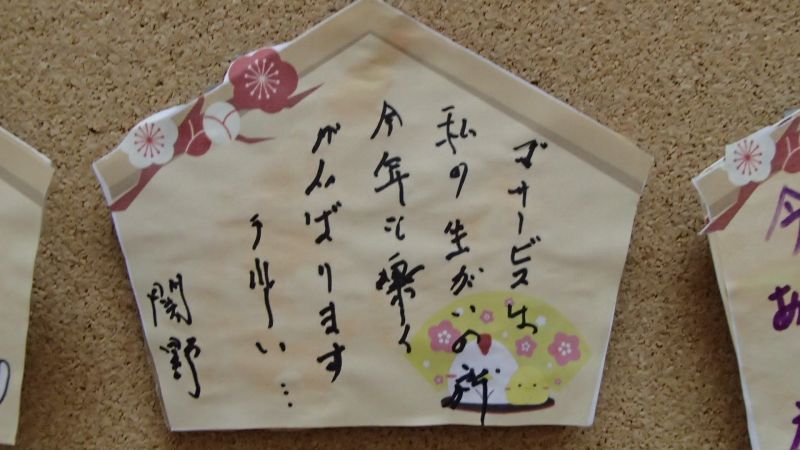 デサービスは
私の生がいの所
今年も楽く
がんばります
関野
今
あ